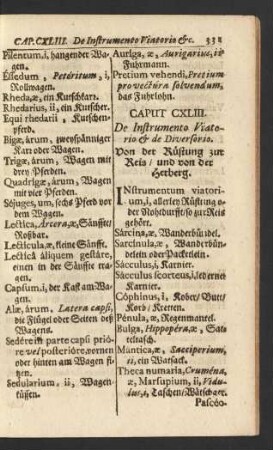 CAP. CXLIII. De Instrumento Viatorio &c. 331
Pilentum, i, hangender Wa-
gen.
Essedum, Petóritum, i,
Rollwagen.
Rheda, æ, ein Kutschkarr.
Rhedarius, ii, ein Kutscher.
Equi rhedarii, Kutschen-
pferd.
Bigæ, árum, zweyspänniger
Karr oder Wagen.
Trigæ, árum, Wagen mit
drey Pferden.
Quadrigæ, árum, Wagen
mit vier Pferden.
Séjuges, um, sechs Pferd vor
dem Wagen.
Lectica, Arcera, æ, Sänffte/
Roßbar.
Lecticula, æ, kleine Sänffte.
Lecticâ áliquem gestáre,
einen in der Sänffte tra-
gen.
Capsum, i, der Kast am Wa-
gen.
Alæ, árum, Latera capsi,
die Flügel oder Seiten deß
Wagens.
Sedére in parte capsi prió-
re vel posterióre, vornen
oder hinden am Wagen si-
tzen.
Sedularium, ii, Wagen-
küssen.
Auriga, æ, Aurigarius, ii,
Fuhrmann.
Pretium vehendi, Pretium
pro vectura solvendum,
das Fuhrlohn.
CAPUT CXLIII.
De Instrumento Viato-
rio & de Diversorio.
Von der Rüstung zur
Reis/ und von der
Herberg.
INstrumentum viatori-
um, i, allerley Rüstung o-
der Nohtdurfft/ so zur Reis
gehört.
Sárcina, æ, Wanderbündel.
Sarcinula, æ, Wanderbün-
delein oder Packtlein.
Sácculus, i, Karnier.
Sácculus scorteus, i, lederner
Karnier.
Cóphinus, i, Kober/ Butt/
Korb/ Kretten.
Pénula, æ, Regenmantel.
Bulga, Hippopéra, æ, Sa-
teltasch.
Mántica, æ, Sacciperium,
ii, ein Watsack.
Theca numaria, Cruména,
æ, Marsupium, ii, Vidu-
lus, i, Taschen/ Wätschger.
Pascéo-